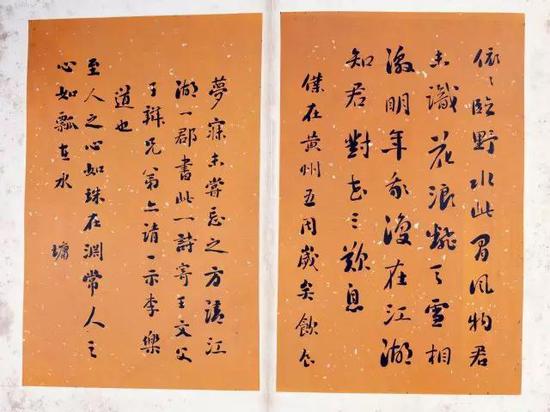 依〻臨野水此間風物君
未識花浪翻天雪相
激明年我復在江湖
知君對花三歎息
僕在黃州五周歲矣飲食
夢寐未嘗忘之方請江
湖一郡書此一詩寄王文父
子辯兄弟亦請一示李樂
道也
至人之心如珠在淵常人之
心如瓢在水 墉